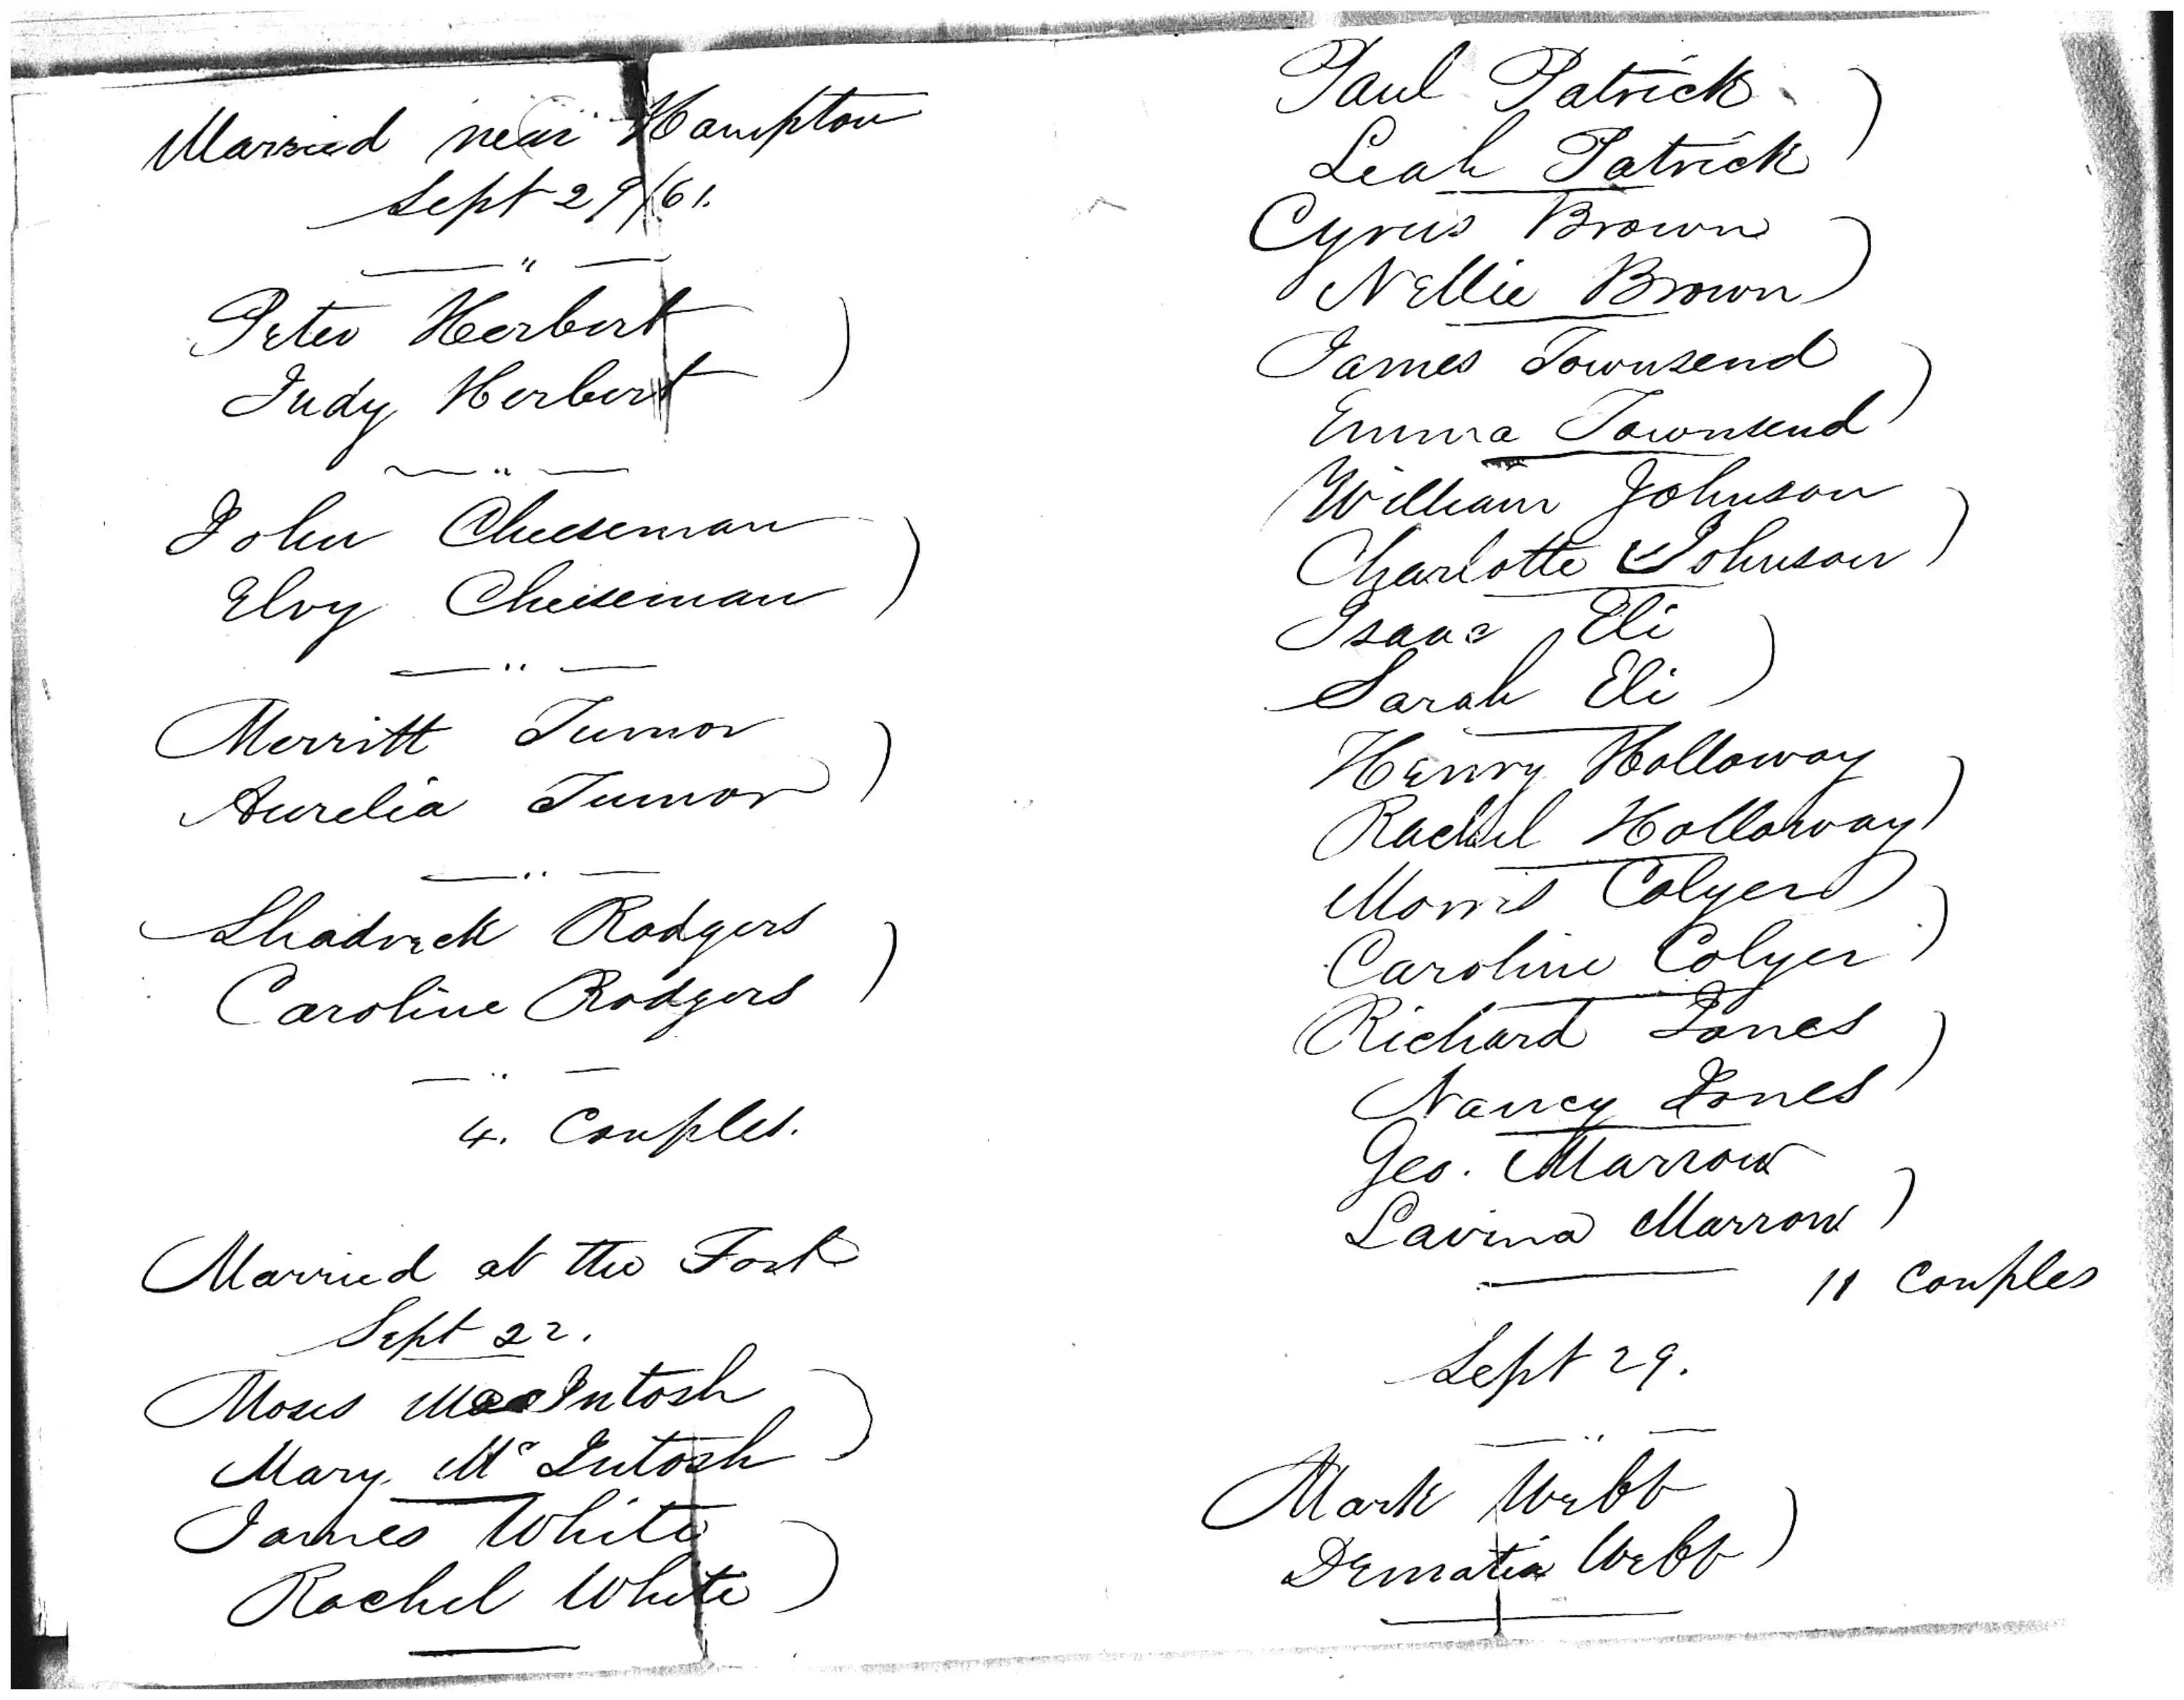 Married near Hampton
Sept 29/61.
Peter Herbert
Judy Herbert
John Cheeseman
Elvy Cheeseman
Merritt Tumor
Aurelia Tumor
Shadrick Rodgers
Caroline Rodgers
4. Couples.
Married at the Fort
Sept 22.
Moses MacIntosh
Mary McIntosh
James White
Rachel White
Paul Patrick
Leah Patrick
Cyrus Brown
Nellie Brown
James Townsend
Emma Townsend
William Johnson
Charlotte Johnson
Isaac Eli
Sarah Eli
Henry Holloway
Rachel Holloway
Morris Colyer
Caroline Colyer
Richard Jones
Nancy Jones
Geo. Marrow
Lavina Marrow
11 Couples
Sept 29.
Mark Webb
Dematia Webb